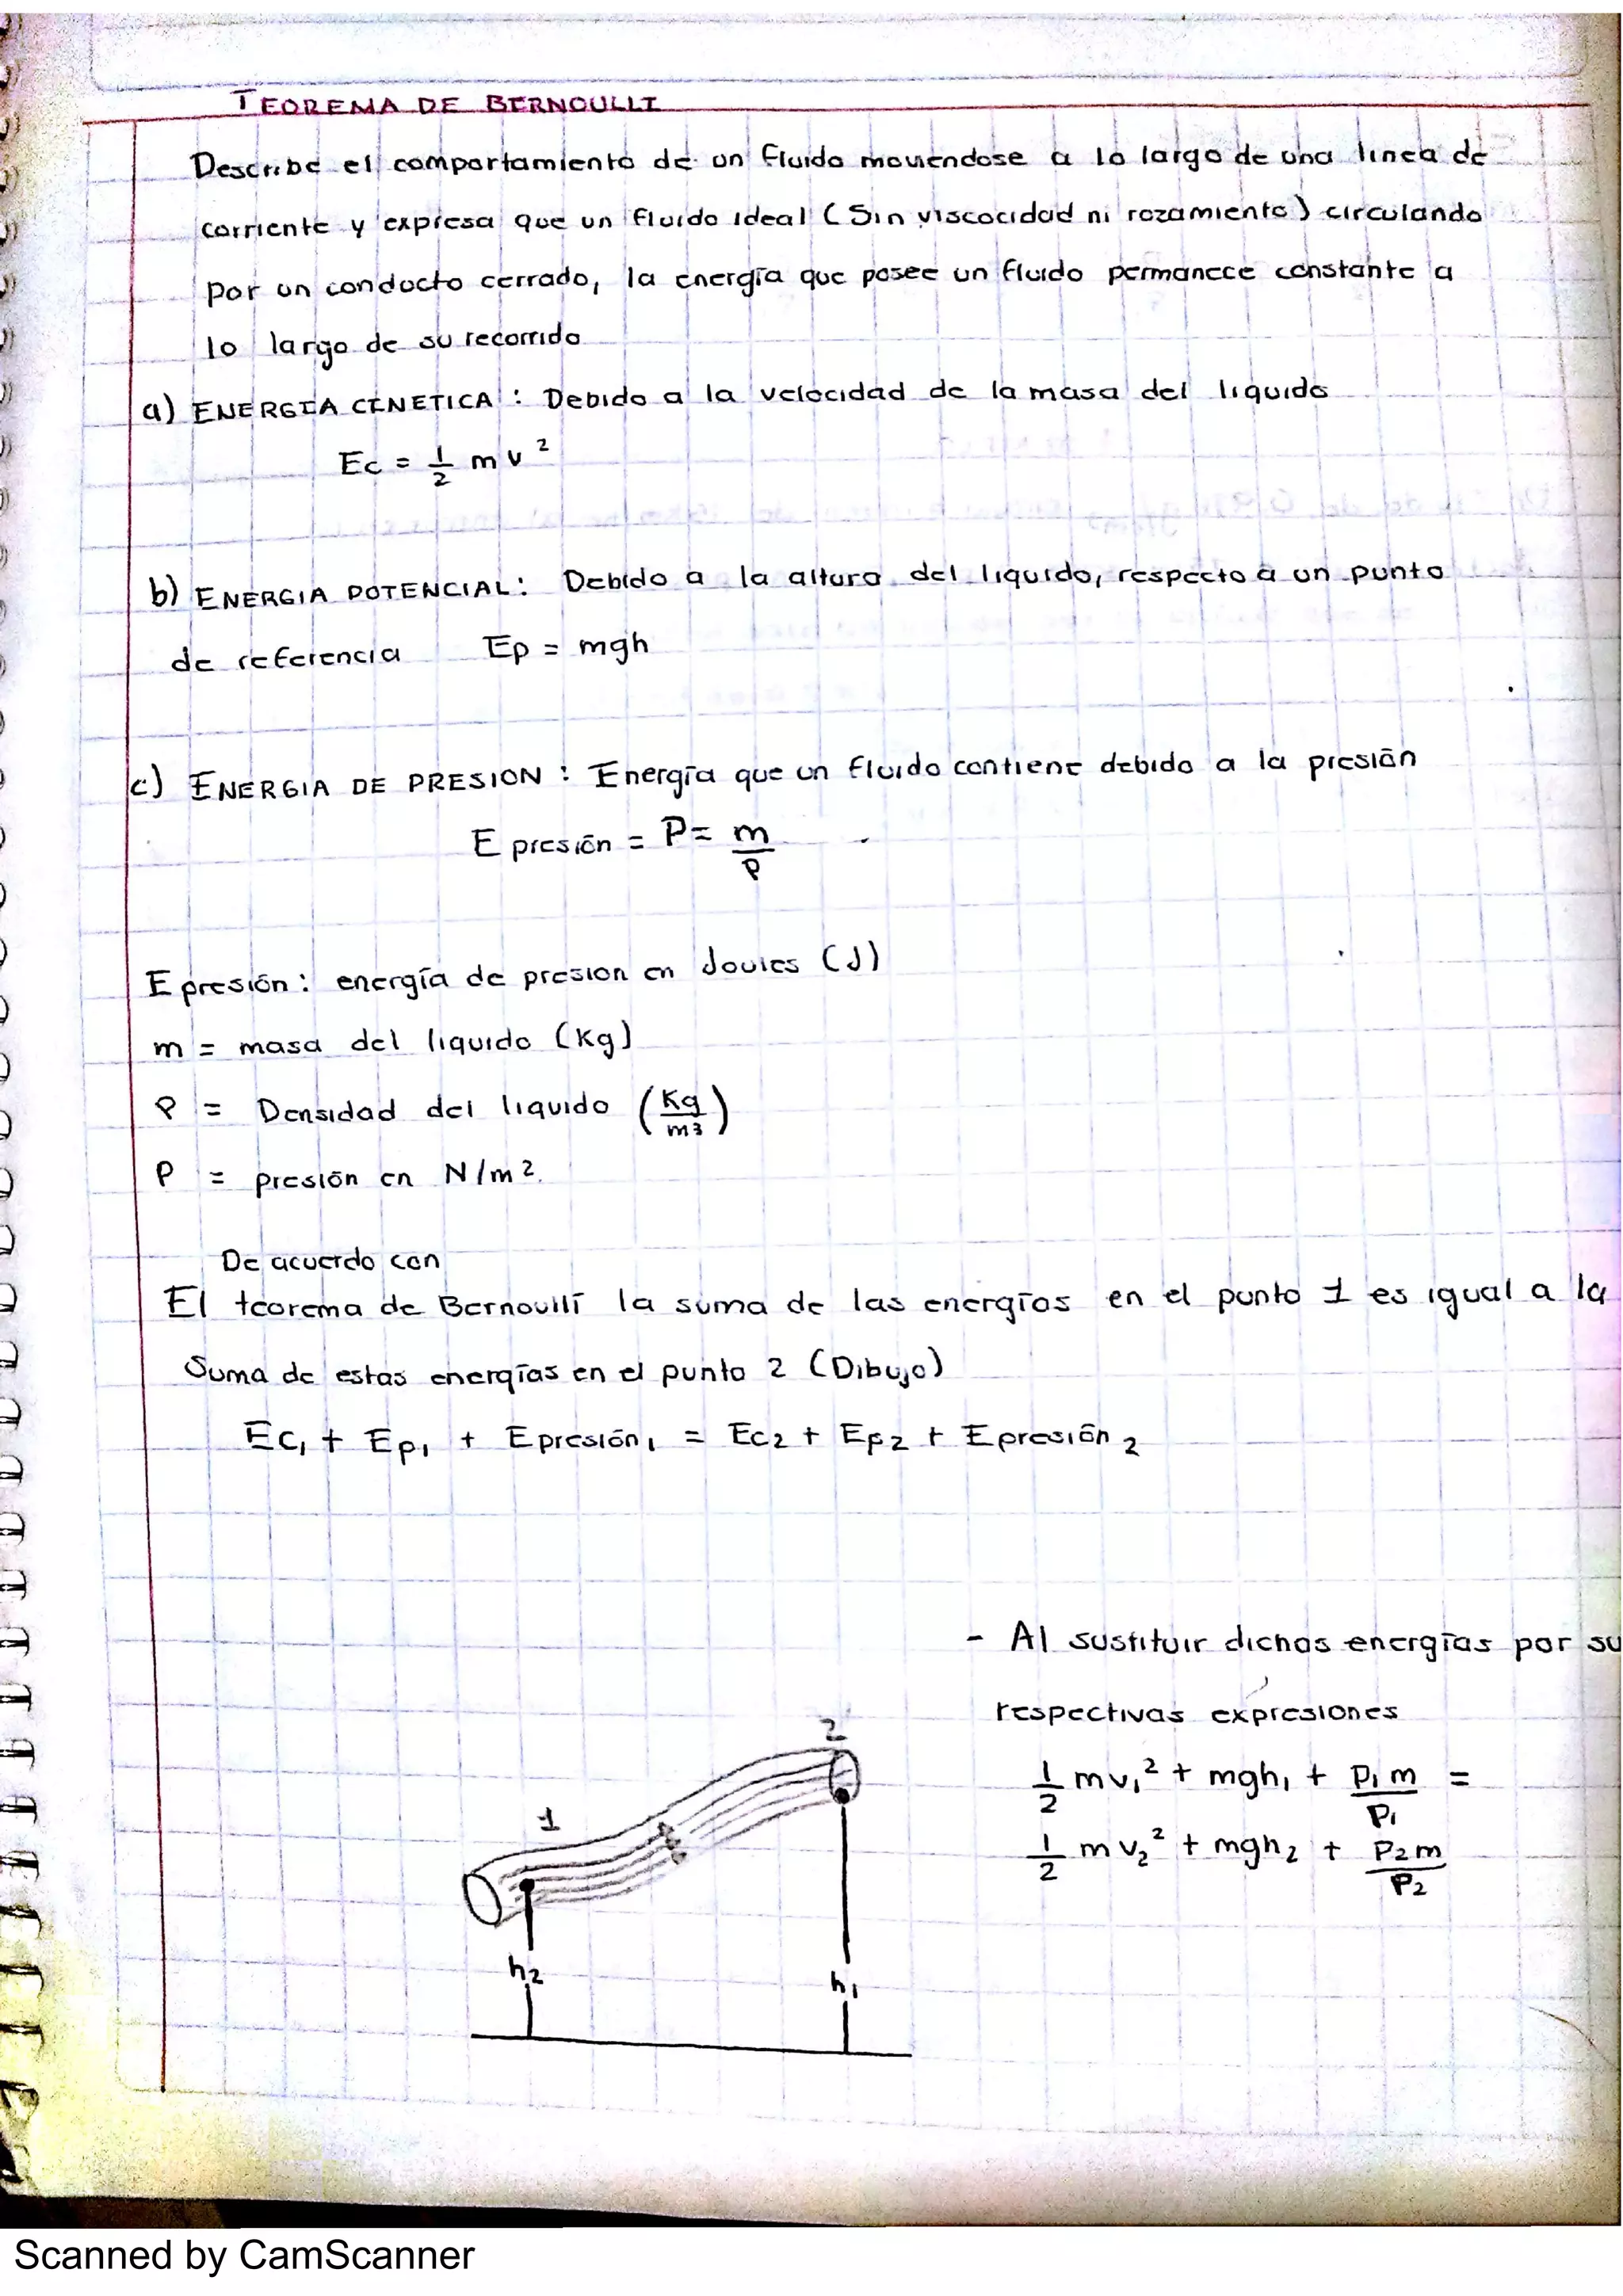 TEOREMA DE BERNOULLI
Describe el comportamiento de un fluido moviendose a lo largo de una linea de
corriente y expresa que un fluido ideal (Sin viscocidad ni rozamiento) circulando
por un conducto cerrado, la energía que posee un fluido permanece constante a
lo largo de su recorrido
a) ENERGIA CINETICA : Debido a la velocidad de la masa del liquido
Ec = 1/2 m v²
b) ENERGIA POTENCIAL: Debido a la altura del liquido, respecto a un punto
de referencia Ep = mgh
c) ENERGIA DE PRESION : Energía que un fluido contiene debido a la presión
E presión = P= m/ρ
E presión : energía de presion en Joules (J)
m = masa del liquido (Kg)
ρ = Densidad del liquido (Kg/m3)
P = presión en N/m2.
De acuerdo con
El teorema de Bernoulli la suma de las energías en el punto 1 es igual a la
Suma de estas energías en el punto 2 (Dibujo)
Ec₁ + Ep₁ + Epresión₁ = Ec2 + Ep2 + Epresión 2
- Al sustituir dichas energías por su
respectivas expresiones
1/2 mv₁² + mgh₁ + P₁m/ρ₁ =
1/2 mv₂² + mgh₂ + P2m/ρ2
2
1
h2
h₁
Scanned by CamScanner